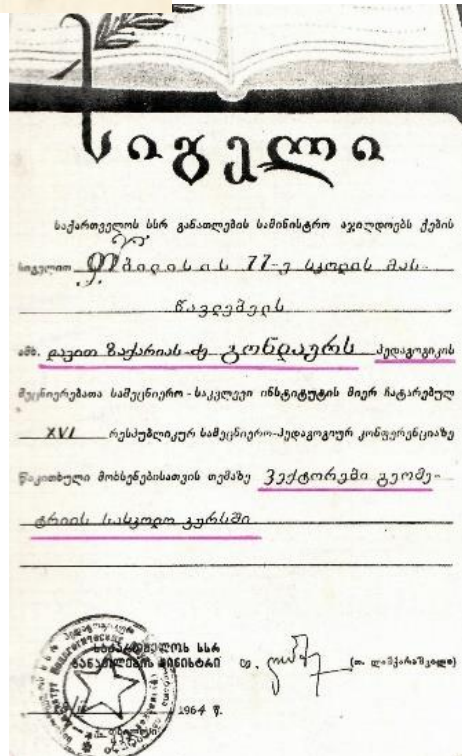 სიგელი
საქართველოს სსრ განათლების სამინისტრო აჯილდოებს ქების
სიგელით თბილისის 77-ე სკოლის მას-
წავლებელს
ამხ. დავით ზაქარიას-ძე გონდაურს პედაგოგიკის
მეცნიერებათა სამეცნიერო-საკვლევი ინსტიტუტის მიერ ჩატარებულ
XVI რესპუბლიკურ სამეცნიერო-პედაგოგიურ კონფერენციაზე
წაკითხული მოხსენებისათვის თემაზე ვექტორები გეომე-
ტრიის სასკოლო კურსში
საქართველოს სსრ
განათლების მინისტრი (თ. ლაშქარაშვილი)
1964 წ.